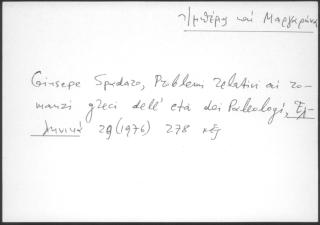 Ἠμπέρης καὶ Μαργαρώνα
Giusepe Spadaro, Problemi relativi ai ro-
manzi greci dell' età dei Paleologi, Ἑλ-
ληνικά 29 (1976) 278 κἑξ